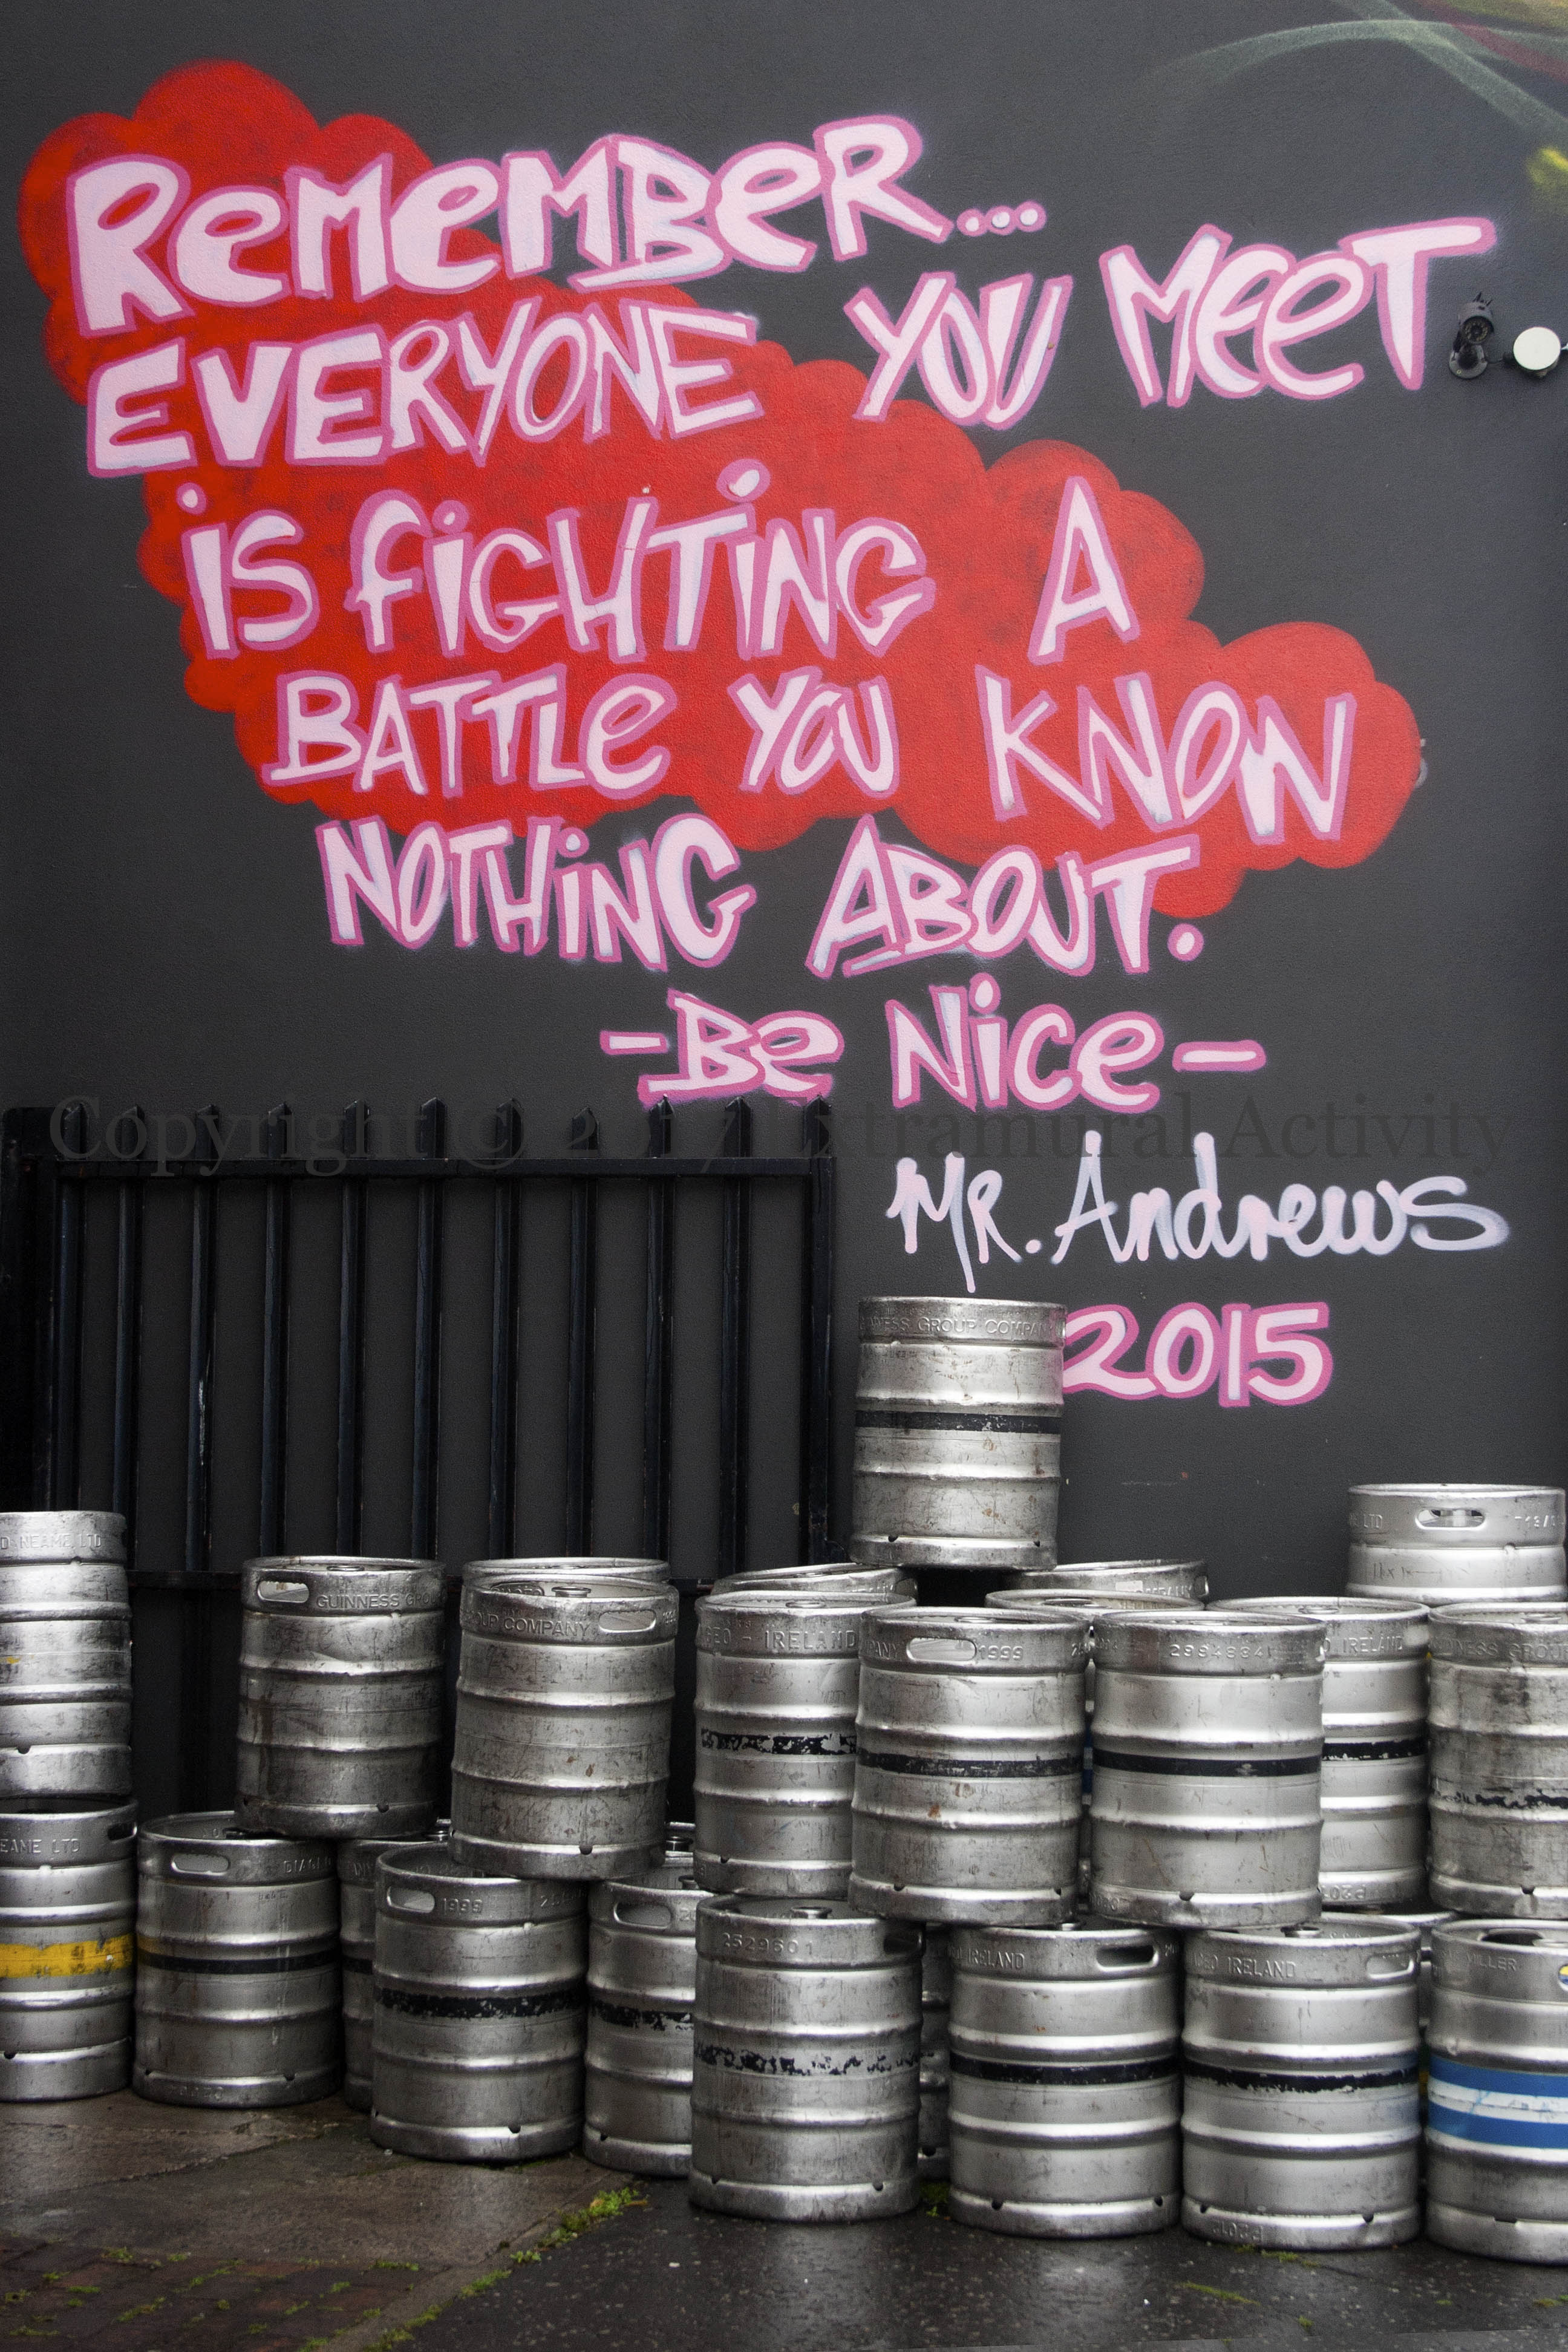 Remember...
EVERYONE YOU MEET
is fiGHTiNG A
BATTLe YOU KNOW
NOTHiNG ABOUT.
-Be Nice-
Copyright © 2017 Extramural Activity
MR. Andrews
2015
GROUP COMPANY
LTD
NEAME LTD
GUINNESS
GROUP COMPANY
IRELAND
1999
2994684
IRELAND
GROUP
LTD
1999
2629601
IRELAND
IRELAND